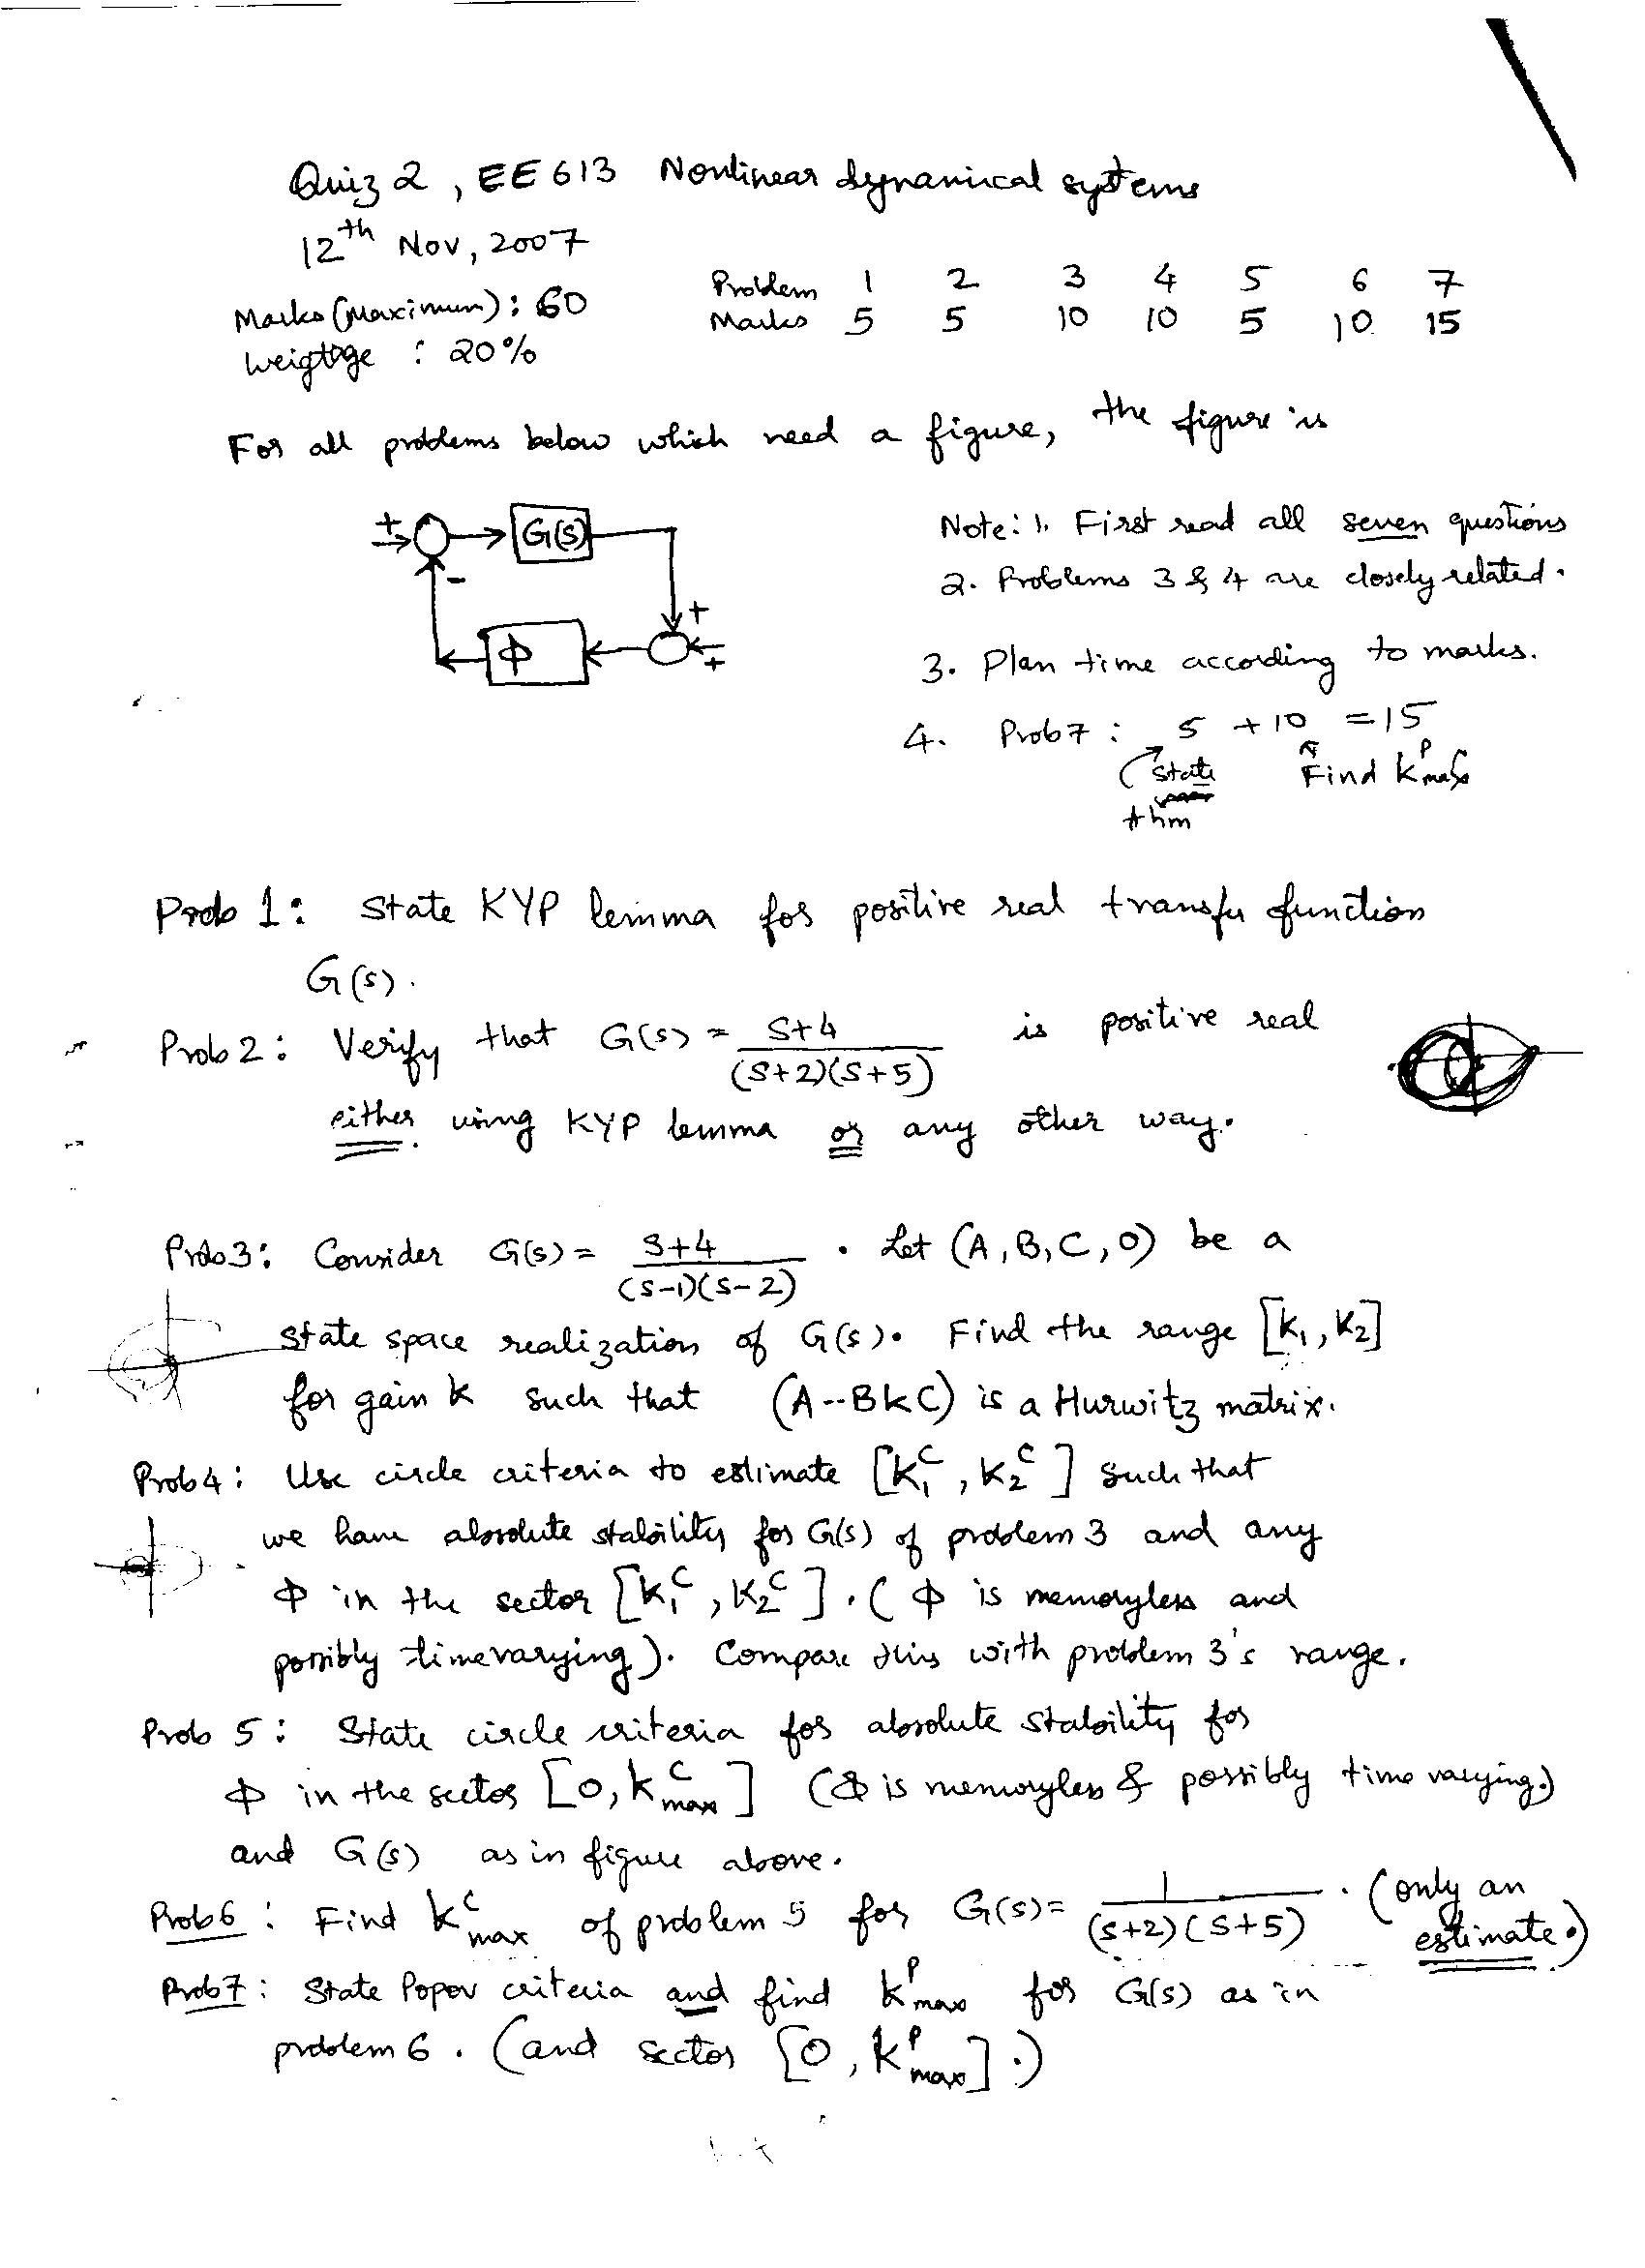 Quiz 2, EE 613 Nonlinear dynamical systems
12th Nov, 2007
Marks (Maximum): 60
Weigtage : 20%
Problem 1 2 3 4 5 6 7
Marks 5 5 10 10 5 10 15
For all problems below which need a figure, the figure is
+ G(s)
-
Φ + +
Note: 1. First read all seven questions
2. Problems 3 & 4 are closely related.
3. Plan time according to marks.
4. Prob 7 : 5 + 10 = 15
State thm Find K^P_max
Prob 1: State KYP lemma for positive real transfer function
G(s).
Prob 2: Verify that G(s) = (s+4)/((s+2)(s+5)) is positive real
either using KYP lemma or any other way.
Prob 3: Consider G(s) = (s+4)/((s-1)(s-2)) . Let (A, B, C, 0) be a
state space realization of G(s). Find the range [K₁, K₂]
for gain K such that (A--BKC) is a Hurwitz matrix.
Prob 4: Use circle criteria to estimate [K₁^C, K₂^C] such that
we have absolute stability for G(s) of problem 3 and any
Φ in the sector [K₁^C, K₂^C]. (Φ is memoryless and
possibly timevarying). Compare this with problem 3's range.
Prob 5: State circle criteria for absolute stability for
Φ in the sector [0, K^C_max] (Φ is memoryless & possibly time varying.)
and G(s) as in figure above.
Prob 6: Find K^C_max of problem 5 for G(s) = 1/((s+2)(s+5)) . (only an
estimate.)
Prob 7: State Popov criteria and find K^P_max for G(s) as in
problem 6. (and sector [0, K^P_max].)